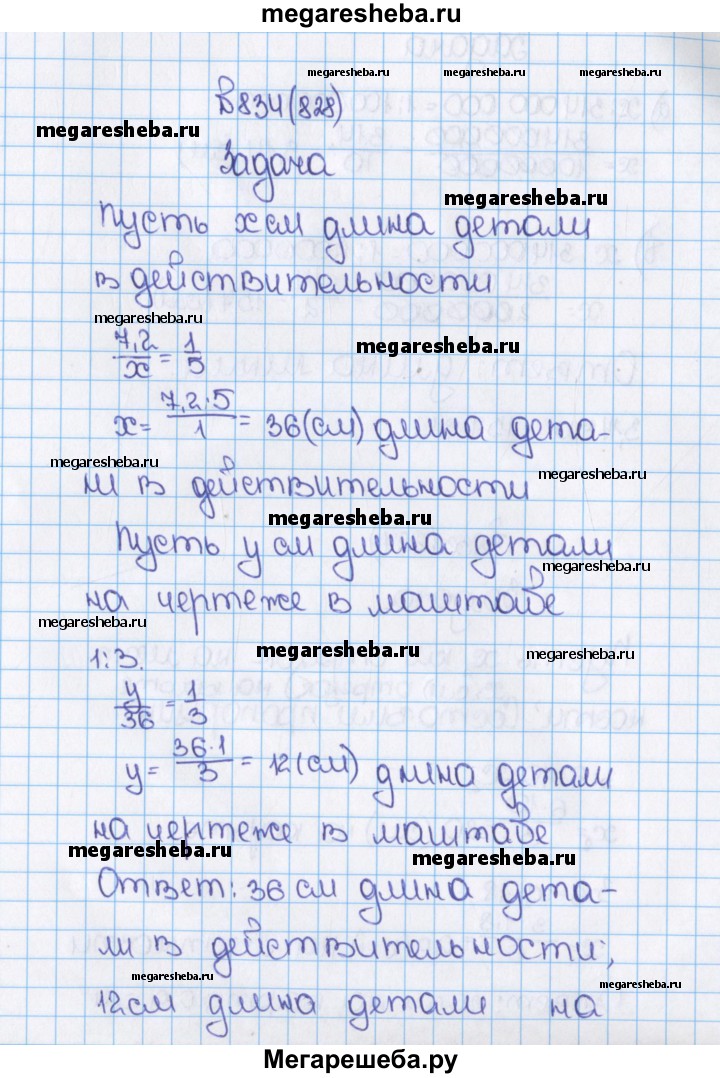 megaresheba.ru
megaresheba.ru megaresheba.ru
В834(828)
megaresheba.ru
Задача
megaresheba.ru
Пусть x см длина детали
в действительности
megaresheba.ru
7,2/x = 1/5
megaresheba.ru
x = 7,2·5/1 = 36(см) длина дета-
megaresheba.ru megaresheba.ru
ли в действительности
megaresheba.ru
Пусть y см длина детали
megaresheba.ru
на чертеже в маштабе
megaresheba.ru
1:3.
megaresheba.ru megaresheba.ru
y/36 = 1/3
y = 36·1/3 = 12(см) длина детали
на чертеже в маштабе
megaresheba.ru megaresheba.ru
Ответ: 36 см длина дета-
ли в действительности;
megaresheba.ru megaresheba.ru
12см длина детали на
Мегарешеба.ру